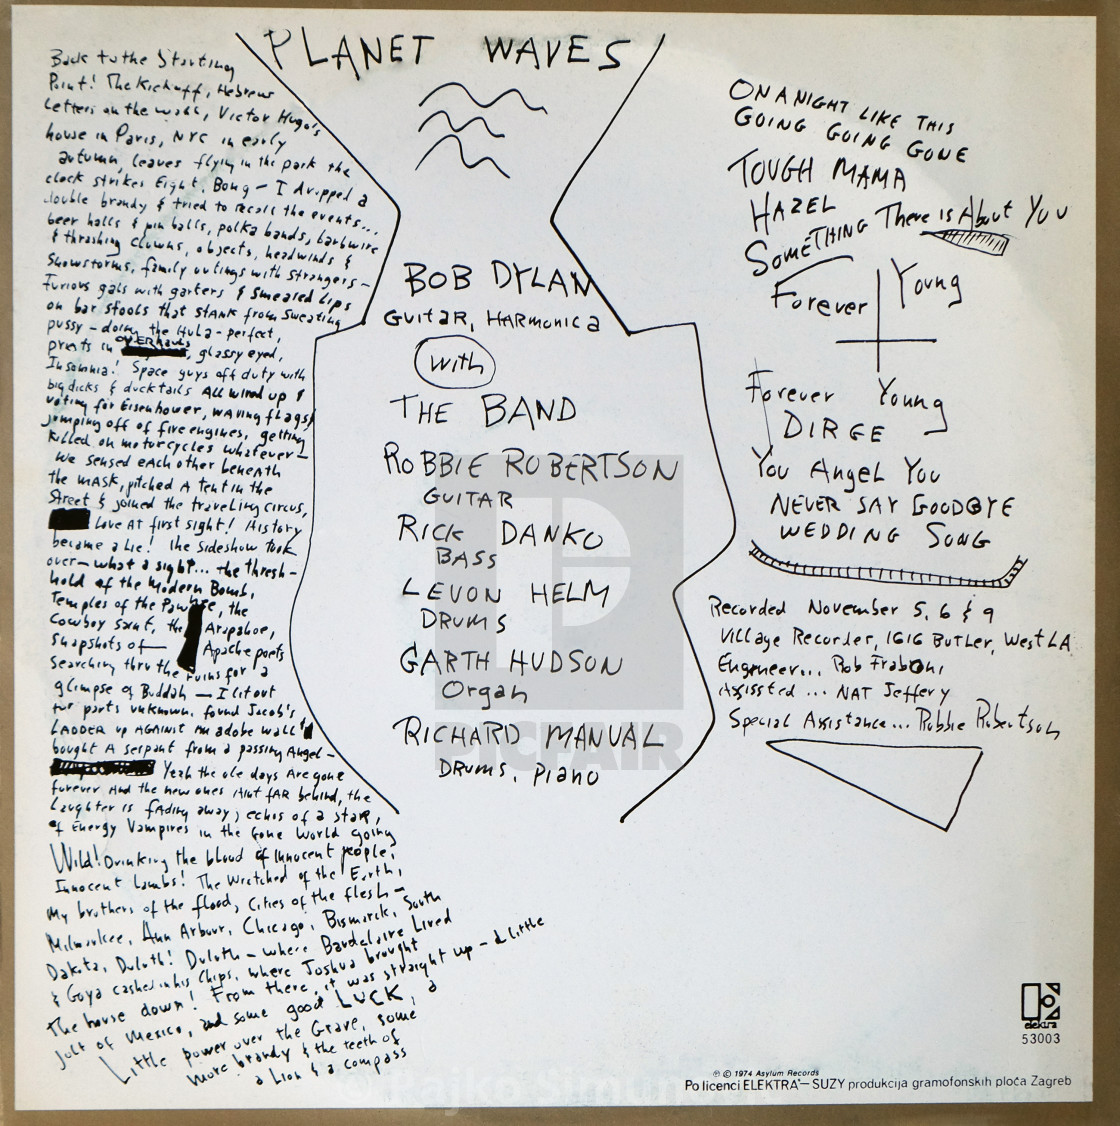 PLANET WAVES
Back to the Starting
Point! The Kickoff, Hebrew
Letters on the wall, Victor Hugo's
house in Paris, NYC in early
autumn, leaves flying in the park the
clock strikes Eight, Bong – I dropped a
double brandy & tried to recall the events...
beer halls & pin balls, polka bands, barbwire
& thrashing clowns, objects, headwinds &
Snowstorms, family outings with strangers –
Furious gals with garters & smeared lips
on bar stools that stank from sweating
pussy – doing the Hula – perfect,
priests in OVERHAULS, glassy eyed,
Insomnia! Space guys off duty with
big dicks & duck tails All wired up &
voting for Eisenhower, waving flags &
jumping off of fire engines, getting
killed on motorcycles whatever –
We sensed each other beneath
the mask, pitched a tent in the
Street & joined the traveling circus,
Love at first sight! History
became a Lie! The sideshow took
over – what a sight... the thresh-
hold of the Modern Bomb,
Temples of the Pawnee, the
Cowboy saint, the Arapahoe,
Snapshots of Apache poets
searching thru the ruins for a
glimpse of Buddah – I lit out
for parts unknown, found Jacob's
LADDER up AGAINST an adobe wall &
bought A serpant from a passing Angel –
Yeah the ole days Are gone
forever And the new ones Aint fAR behind, the
Laughter is fAding away, echos of a staR,
of Energy Vampires in the Gone World going
Wild! Drinking the blood of innocent people,
Innocent Lambs! The Wretched of the Earth,
My brothers of the flood, Cities of the flesh –
Milwaukee, Ann Arbour, Chicago, Bismarck, South
Dakota, Duluth! Duluth – where Baudelaire Lived
& Goya cashed in his Chips, where Joshua brought
The house down! From there, it was straight up – a little
jolt of Mexico, and some good LUCK, a
Little power over the Grave, some
more brandy & the teeth of
a Lion & a compass
BOB DYLAN
GUITAR, HARMONICA
with
THE BAND
ROBBIE ROBERTSON
GUITAR
RICK DANKO
BASS
LEVON HELM
DRUMS
GARTH HUDSON
Organ
RICHARD MANUAL
DRUMS, PIANO
ON A NIGHT LIKE THIS
GOING GOING GONE
TOUGH MAMA
HAZEL
SOMETHING There is About YOU
Forever Young
Forever Young
DIRGE
You Angel You
NEVER SAY GOODBYE
WEDDING SONG
Recorded November 5, 6 & 9
Village Recorder, 1616 BUTLER, West LA
Engineer... Rob Fraboni
Assissted ... NAT Jeffery
Special Assistance... Robbie Robertson
elektra
53003
℗ © 1974 Asylum Records
Po licenci ELEKTRA – SUZY produkcija gramofonskih ploča Zagreb
PICFAIR